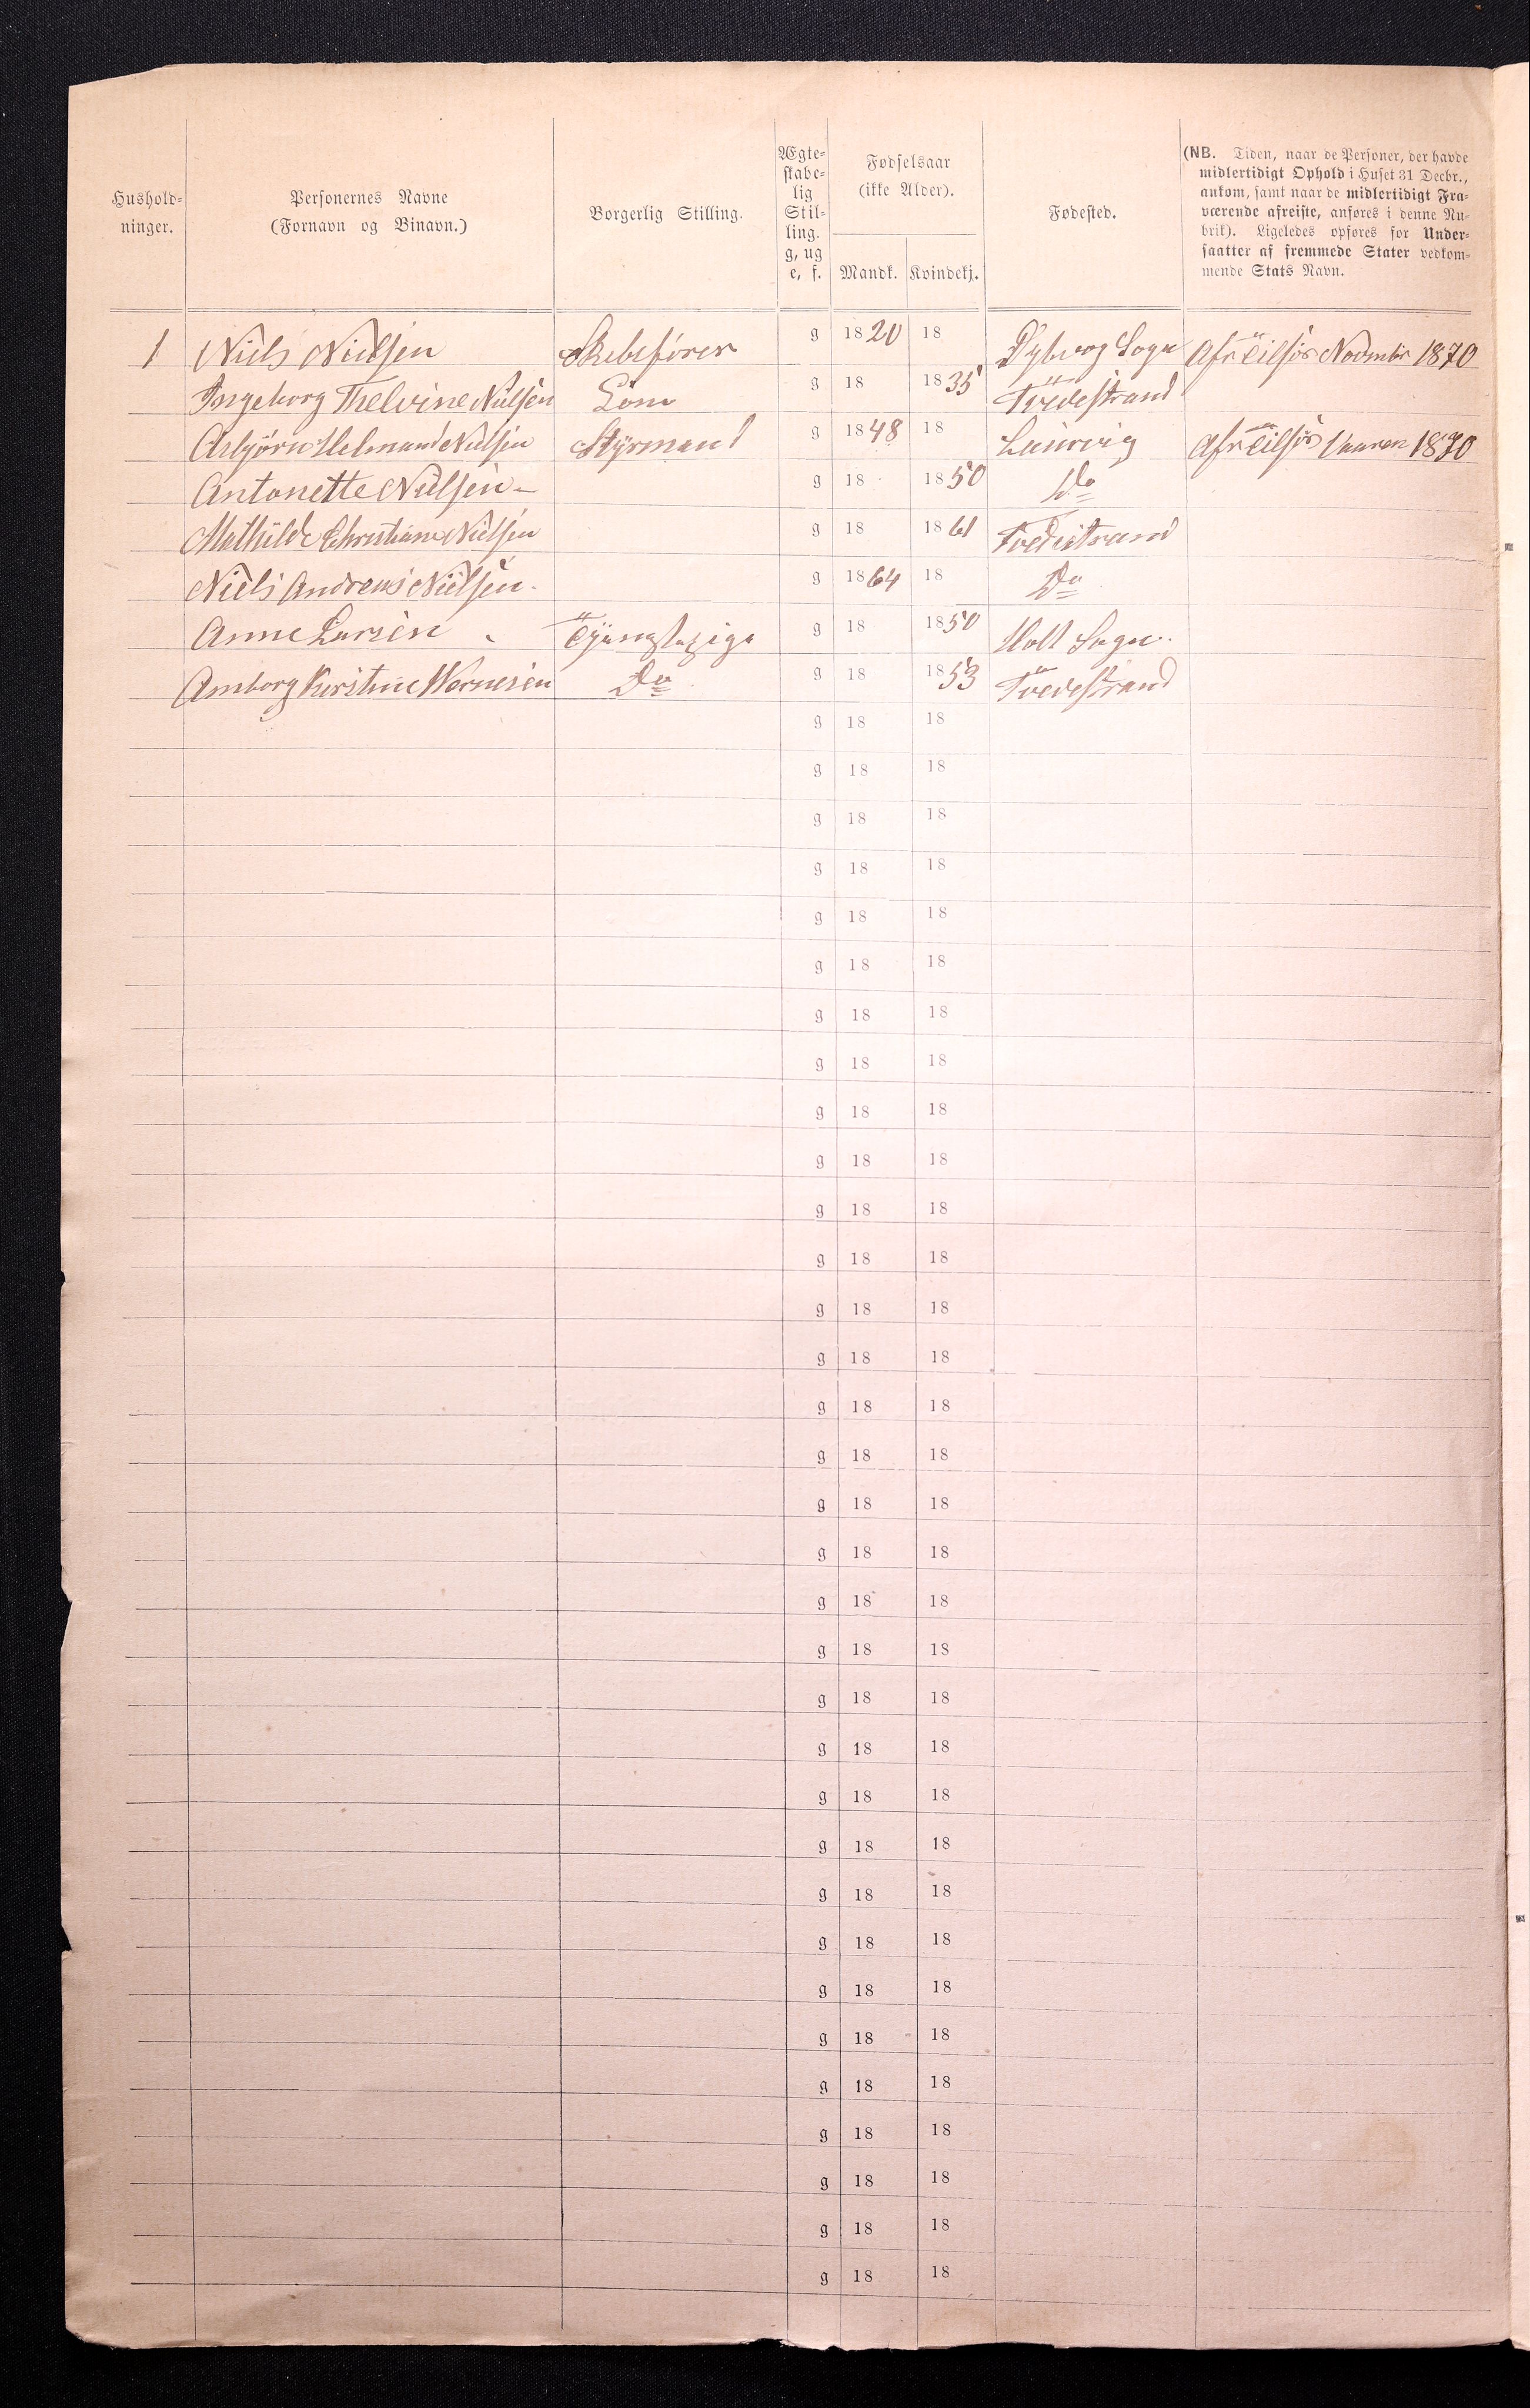 Hushold-
ninger.
Personernes Navne
(Fornavn og Binavn.)
Borgerlig Stilling.
Ægte-
skabe-
lig
Stil-
ling.
g, ug
e, f.
Fødselsaar
(ikke Alder).
Mandk. Kvindekj.
Fødested.
(NB. Tiden, naar de Personer, der havde
midlertidigt Ophold i Huset 31 Decbr.,
ankom, samt naar de midlertidigt Fra-
værende afreiste, anføres i denne Ru-
brik). Ligeledes opføres for Under-
saatter af fremmede Stater vedkom-
mende Stats Navn.
1 Niels Nielsen Skibsförer g 1820 18 Dybvog Sogn Afr Tilsjös Novmbr 1870
Ingeborg Thelvine Nielsen g 18 1835 Tvedestrand
Asbjörn Helmand Nielsen Styrmand g 1848 18 Laurvig Afr Tilsjös Vaaren 1870
Antonette Nielsen g 18 1850 Do
Mathilde Christiane Nielsen g 18 1861 Tvedestrand
Niels Andreas Nielsen. g 1864 18 Do
Anne Larsen g 18 1850 Holt Sogn.
Amborg Kirstine Wernesen Do g 18 1853 Tvedestrand
g 18 18
g 18 18
g 18 18
g 18 18
g 18 18
g 18 18
g 18 18
g 18 18
g 18 18
g 18 18
g 18 18
g 18 18
g 18 18
g 18 18
g 18 18
g 18 18
g 18 18
g 18 18
g 18 18
g 18 18
g 18 18
g 18 18
g 18 18
g 18 18
g 18 18
g 18 18
g 18 18
g 18 18
g 18 18
g 18 18
g 18 18
g 18 18
g 18 18